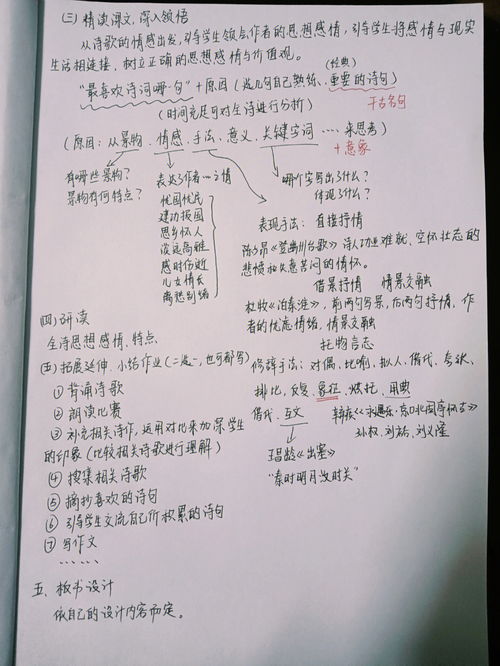 (三)精读课文,深入领悟
从诗歌的情感出发,引导学生领点作者的思想感情,引导学生将感情与现实
生活相连接,树立正确的思想感情与价值观。
(经典)
"最喜欢诗词哪一句"+原因(选几句自己熟悉、重要的诗句)
千古名句
(时间充足可对全诗进行分析)
(原因:从景物、情感、手法、意义、关键字词....来思考)
+意象
有哪些景物?
景物有何特点?
表达了作者…之情
忧国忧民
建功报国
思乡怀人
淡远高雅
感时伤逝
儿女情长
离愁别绪
哪个字写出了什么?
体现了什么?
表现手法:直接抒情
陈子昂《登幽州台歌》诗人功业难就、空怀壮志的
悲愤和失意苦闷的情怀。
借景抒情 情景交融
杜牧《泊秦淮》,前两句写景,后两句抒情,作
者的忧虑情绪,情景交融
托物言志
修辞手法:对偶、比喻、拟人、借代、夸张、
排比、反复、象征、烘托、用典
借代、互文
辛弃疾《永遇乐·京口北固亭怀古》
孙权、刘裕、刘义隆
王昌龄《出塞》
"秦时明月汉时关"
(四)研读
全诗思想感情、特点、
(五)拓展延伸、小结作业(二选一,也可都写)
①背诵诗歌
②朗读比赛
③补充相关诗作,运用对比来加深学生
的印象(比较相关诗歌进行理解)
④搜集相关诗歌
⑤摘抄喜欢的诗句
⑥引导学生交流自己所积累的诗句
⑦写作文
......
五、板书设计
依自己的设计内容而定。